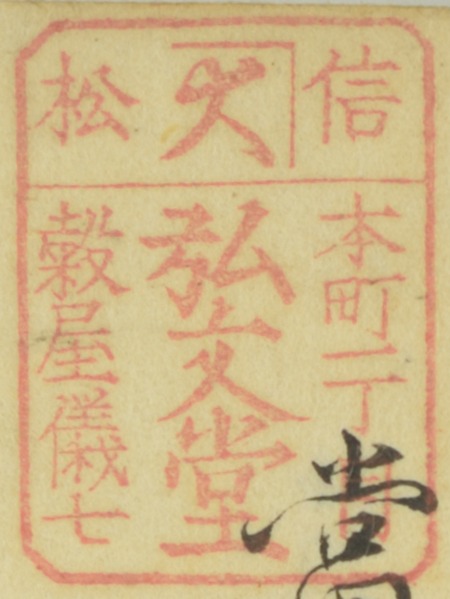 信
本町二丁目
弘文堂
松
穀屋儀七